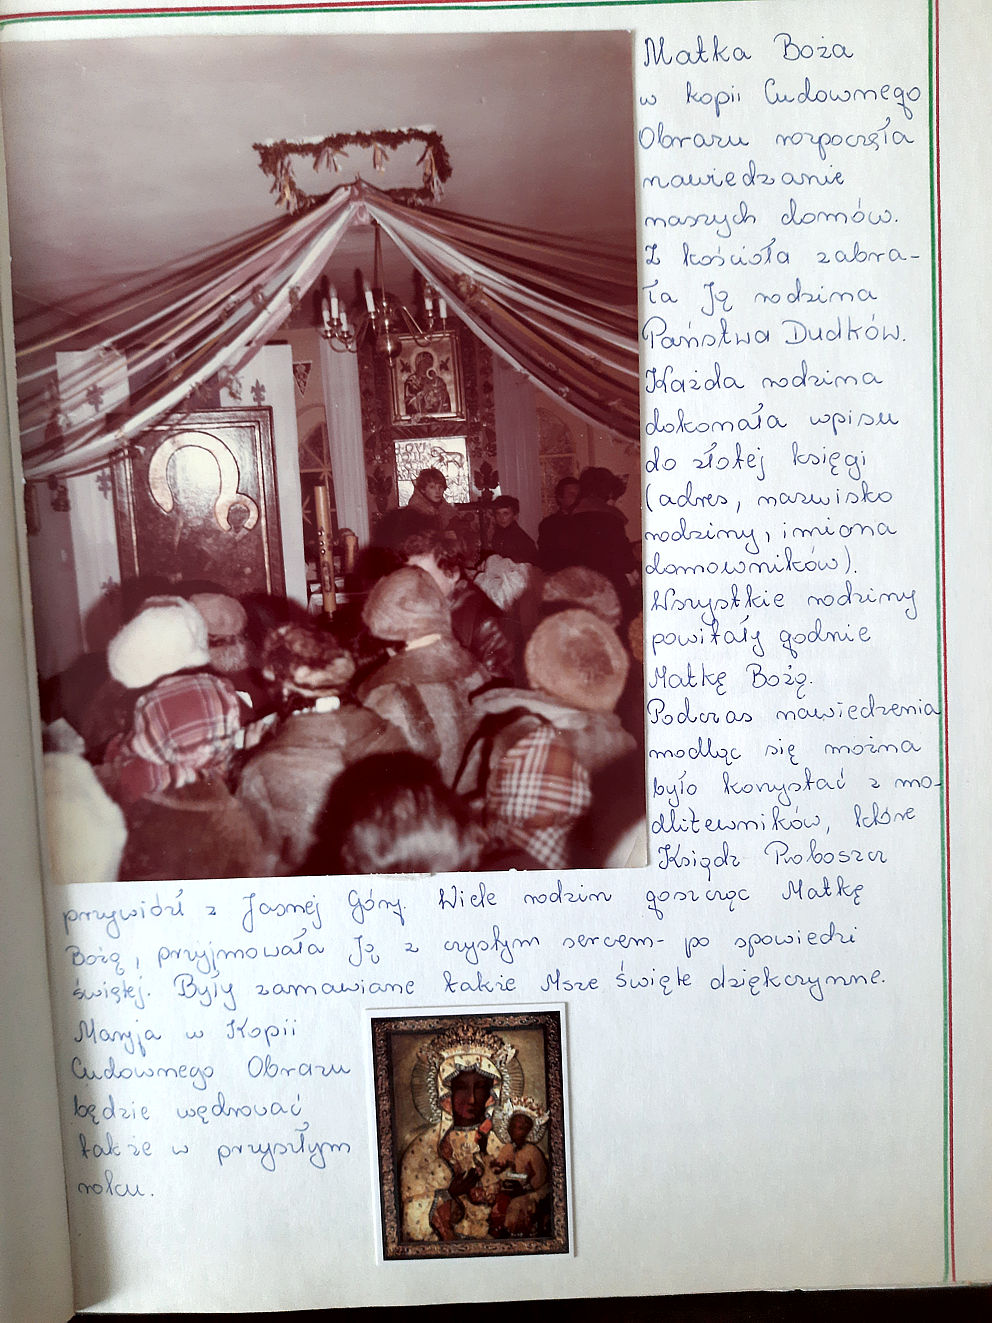 Matka Boża
w kopii Cudownego
Obrazu rozpoczęła
nawiedzanie
naszych domów.
Z kościoła zabra-
ła Ją rodzina
Państwa Dudków.
Każda rodzina
dokonała wpisu
do złotej księgi
(adres, nazwisko
rodziny, imiona
domowników).
Wszystkie rodziny
powitały godnie
Matkę Bożą.
Podczas nawiedzenia
modląc się można
było korzystać z mo-
dlitewników, które
Ksiądz Proboszcz
przywiózł z Jasnej Góry. Wiele rodzin goszcząc Matkę
Bożą, przyjmowała Ją z czystym sercem - po spowiedzi
świętej. Były zamawiane także Msze święte dziękczynne.
Maryja w Kopii
Cudownego Obrazu
będzie wędrować
także w przyszłym
roku.